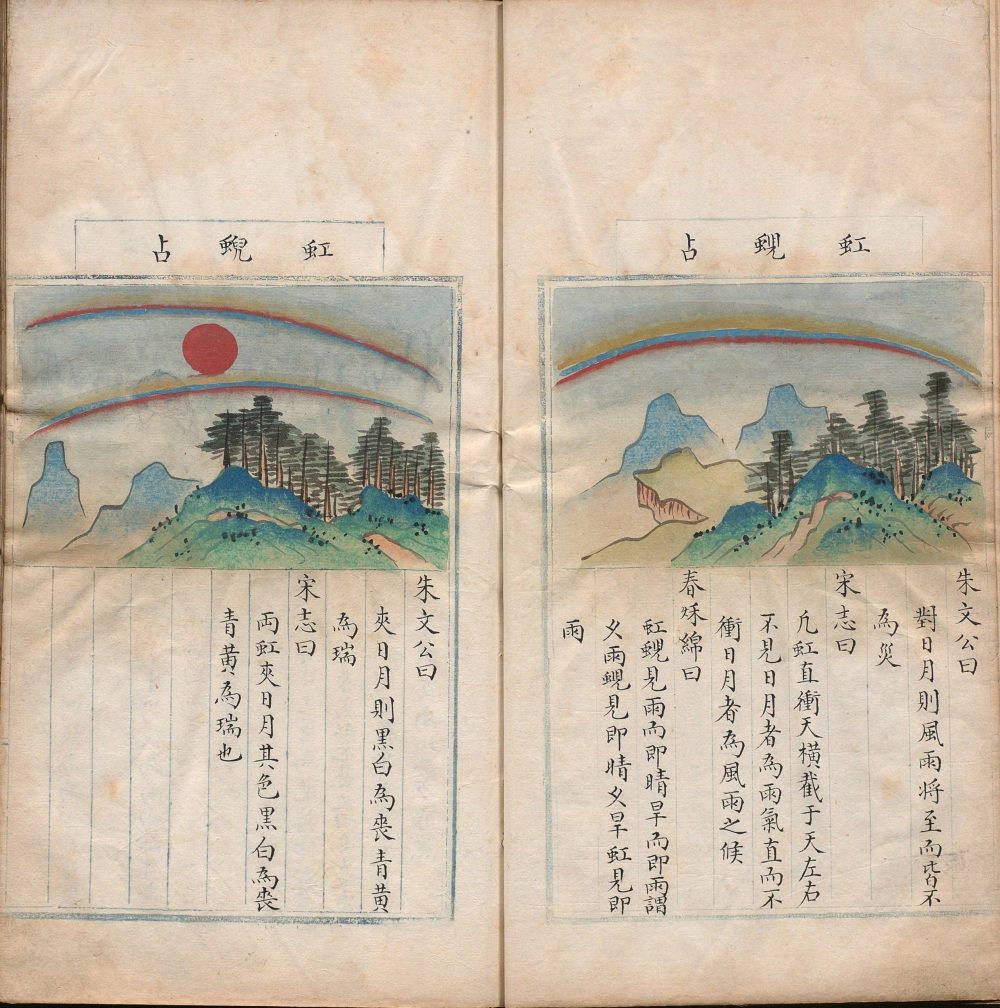 虹蜆占
朱文公曰
對日月則風雨将至而皆不
為災
宋志曰
凢虹直衝天橫截于天左右
不見日月者為雨氣直而不
衝日月者為風雨之候
春秌綿曰
虹蜆見雨而即晴旱而即雨謂
久雨蜆見即晴久旱虹見即
雨
虹蜺占
朱文公曰
夾日月則黑白為喪青黃
為瑞
宋志曰
両虹夾日月其色黑白為喪
青黃為瑞也